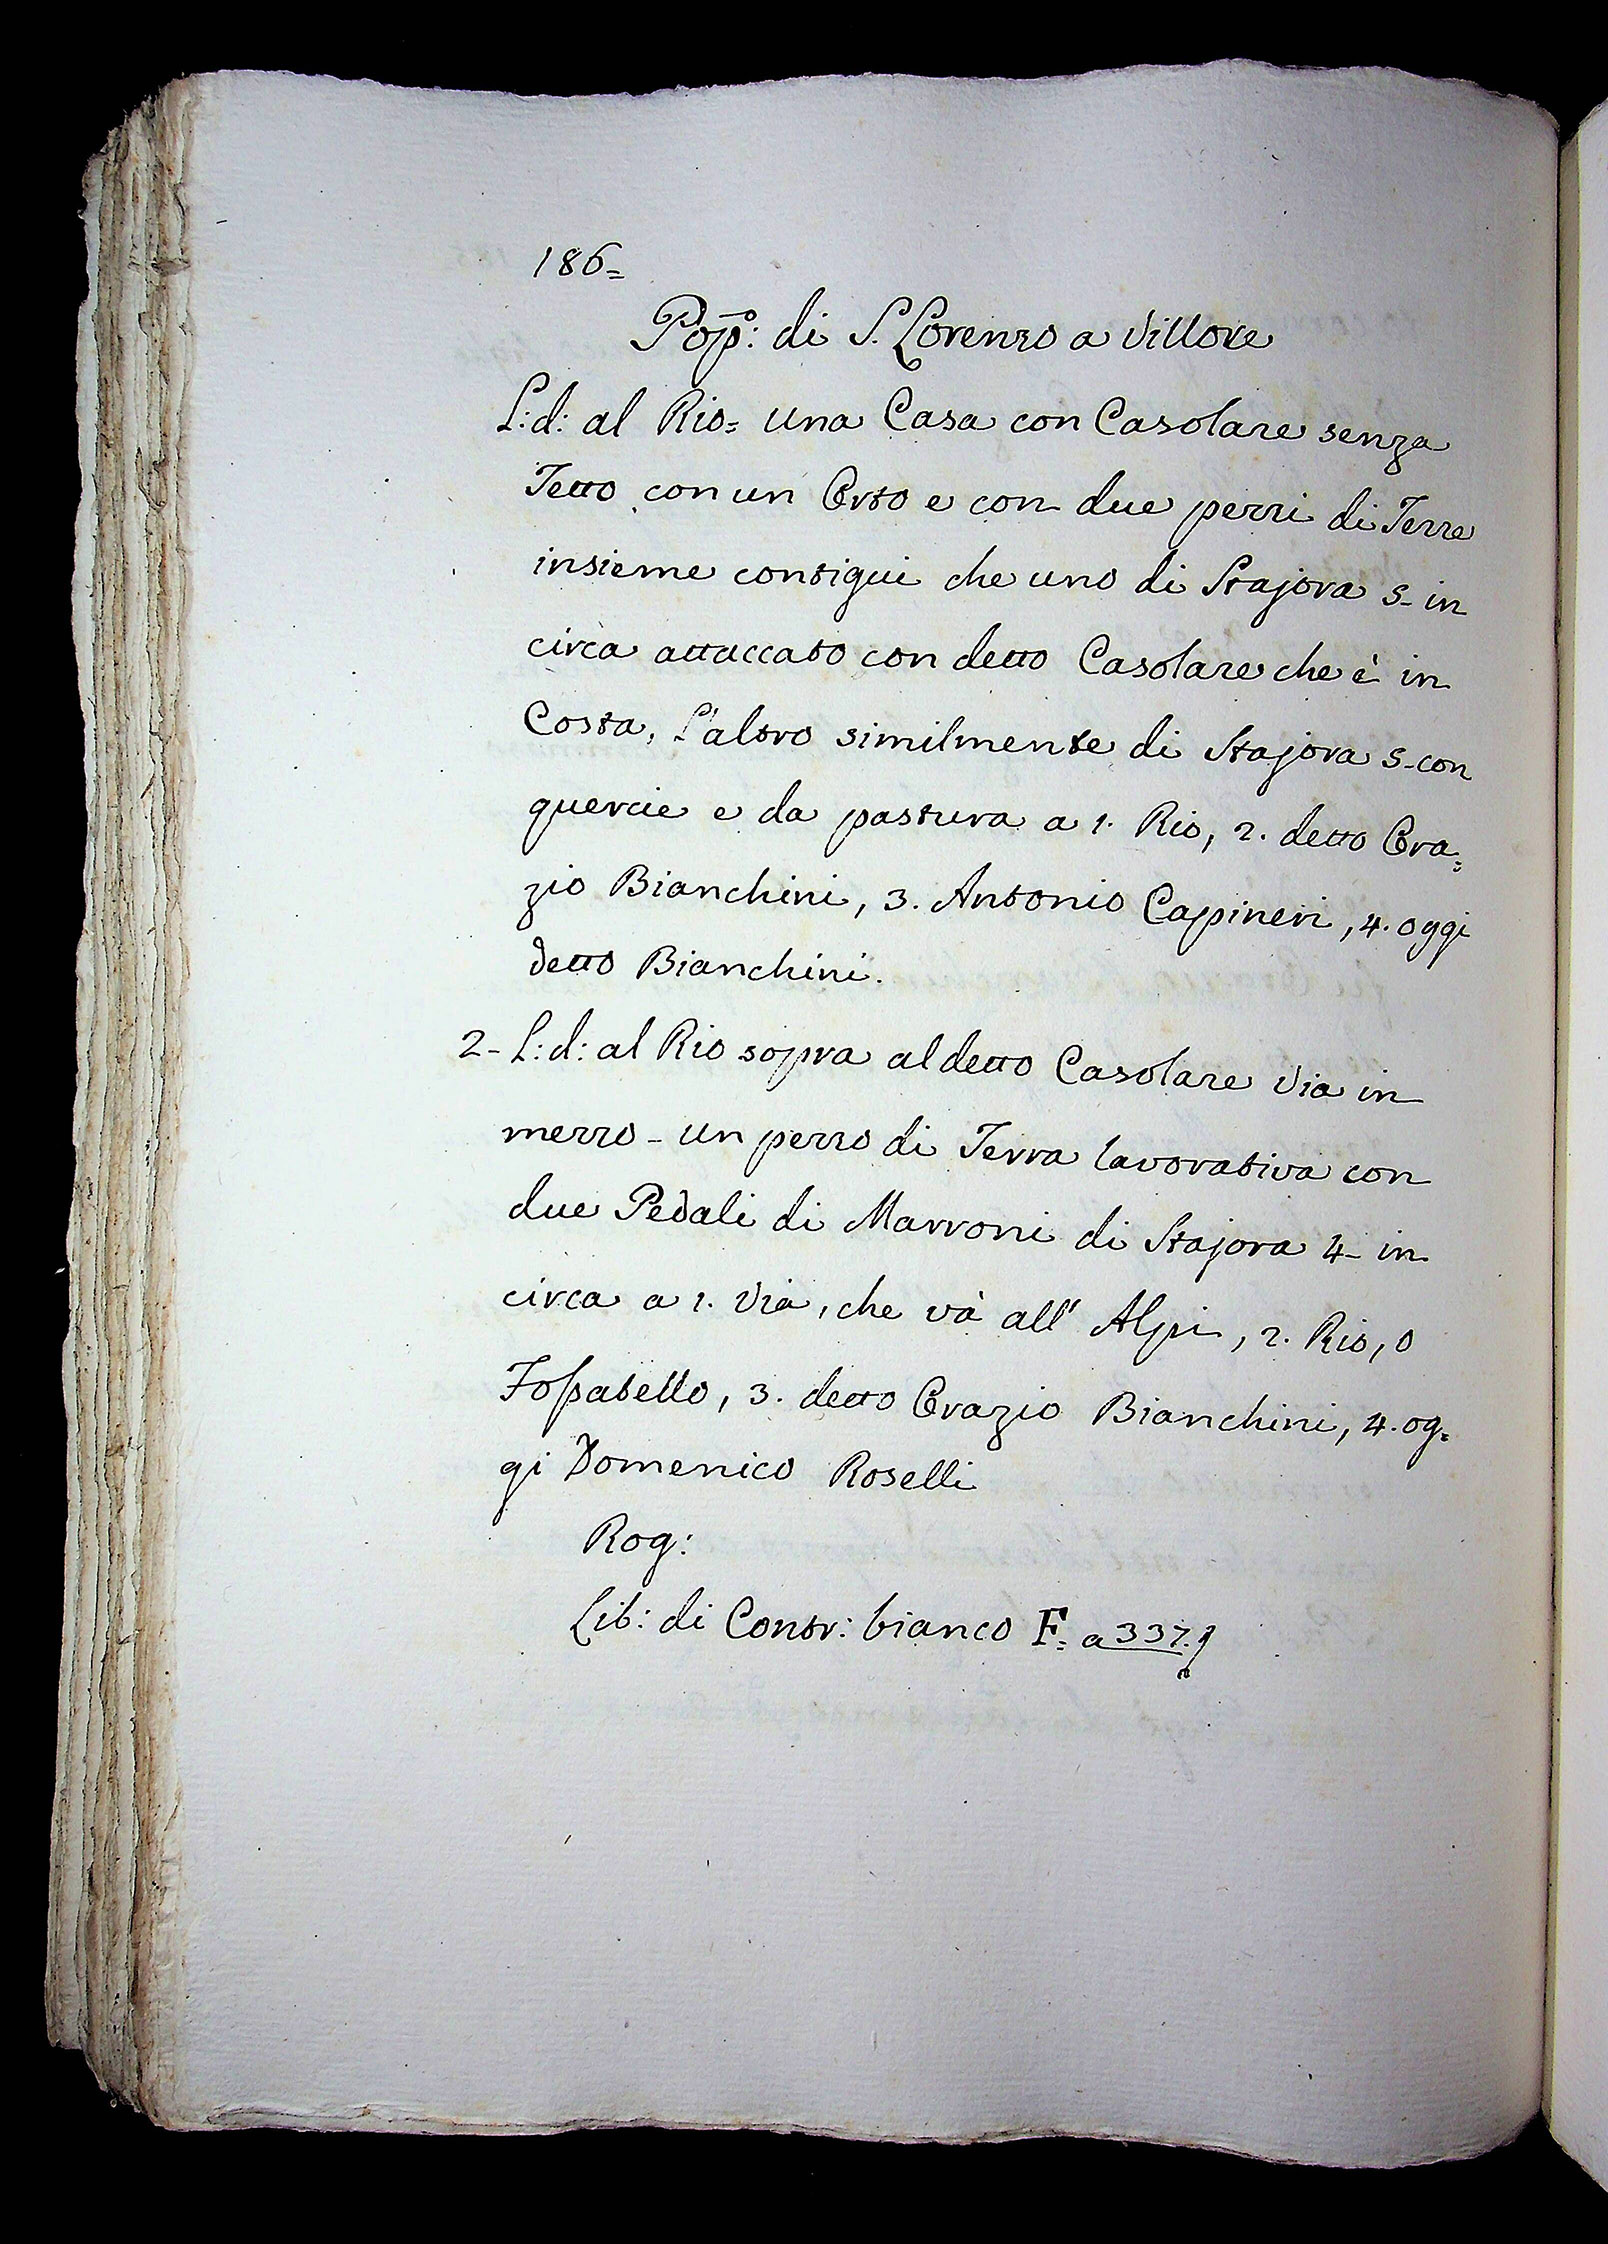 186=
Pop̄o: di S. Lorenzo a Villore
L: d: al Rio= una Casa con Casolare senza
Tetto con un Orto e con due pezzi di Terre
insieme contigui che uno di Stajora 5- in
circa attaccato con detto Casolare che è in
Costa, L'altro similmente di Stajora 5- con
quercie e da pastura a 1. Rio, 2. detto Ora=
zio Bianchini, 3. Antonio Capineri, 4. oggi
detto Bianchini.
2- L: d: al Rio sopra al detto Casolare Via in
mezzo - un pezzo di Terra lavorativa con
due Pedali di Marroni di Stajora 4- in
circa a 1. Via, che và all' Alpi, 2. Rio, o
Fossatello, 3. detto Orazio Bianchini, 4. og=
gi Domenico Roselli
Rog:
Lib: di Contr: bianco F= a 337.